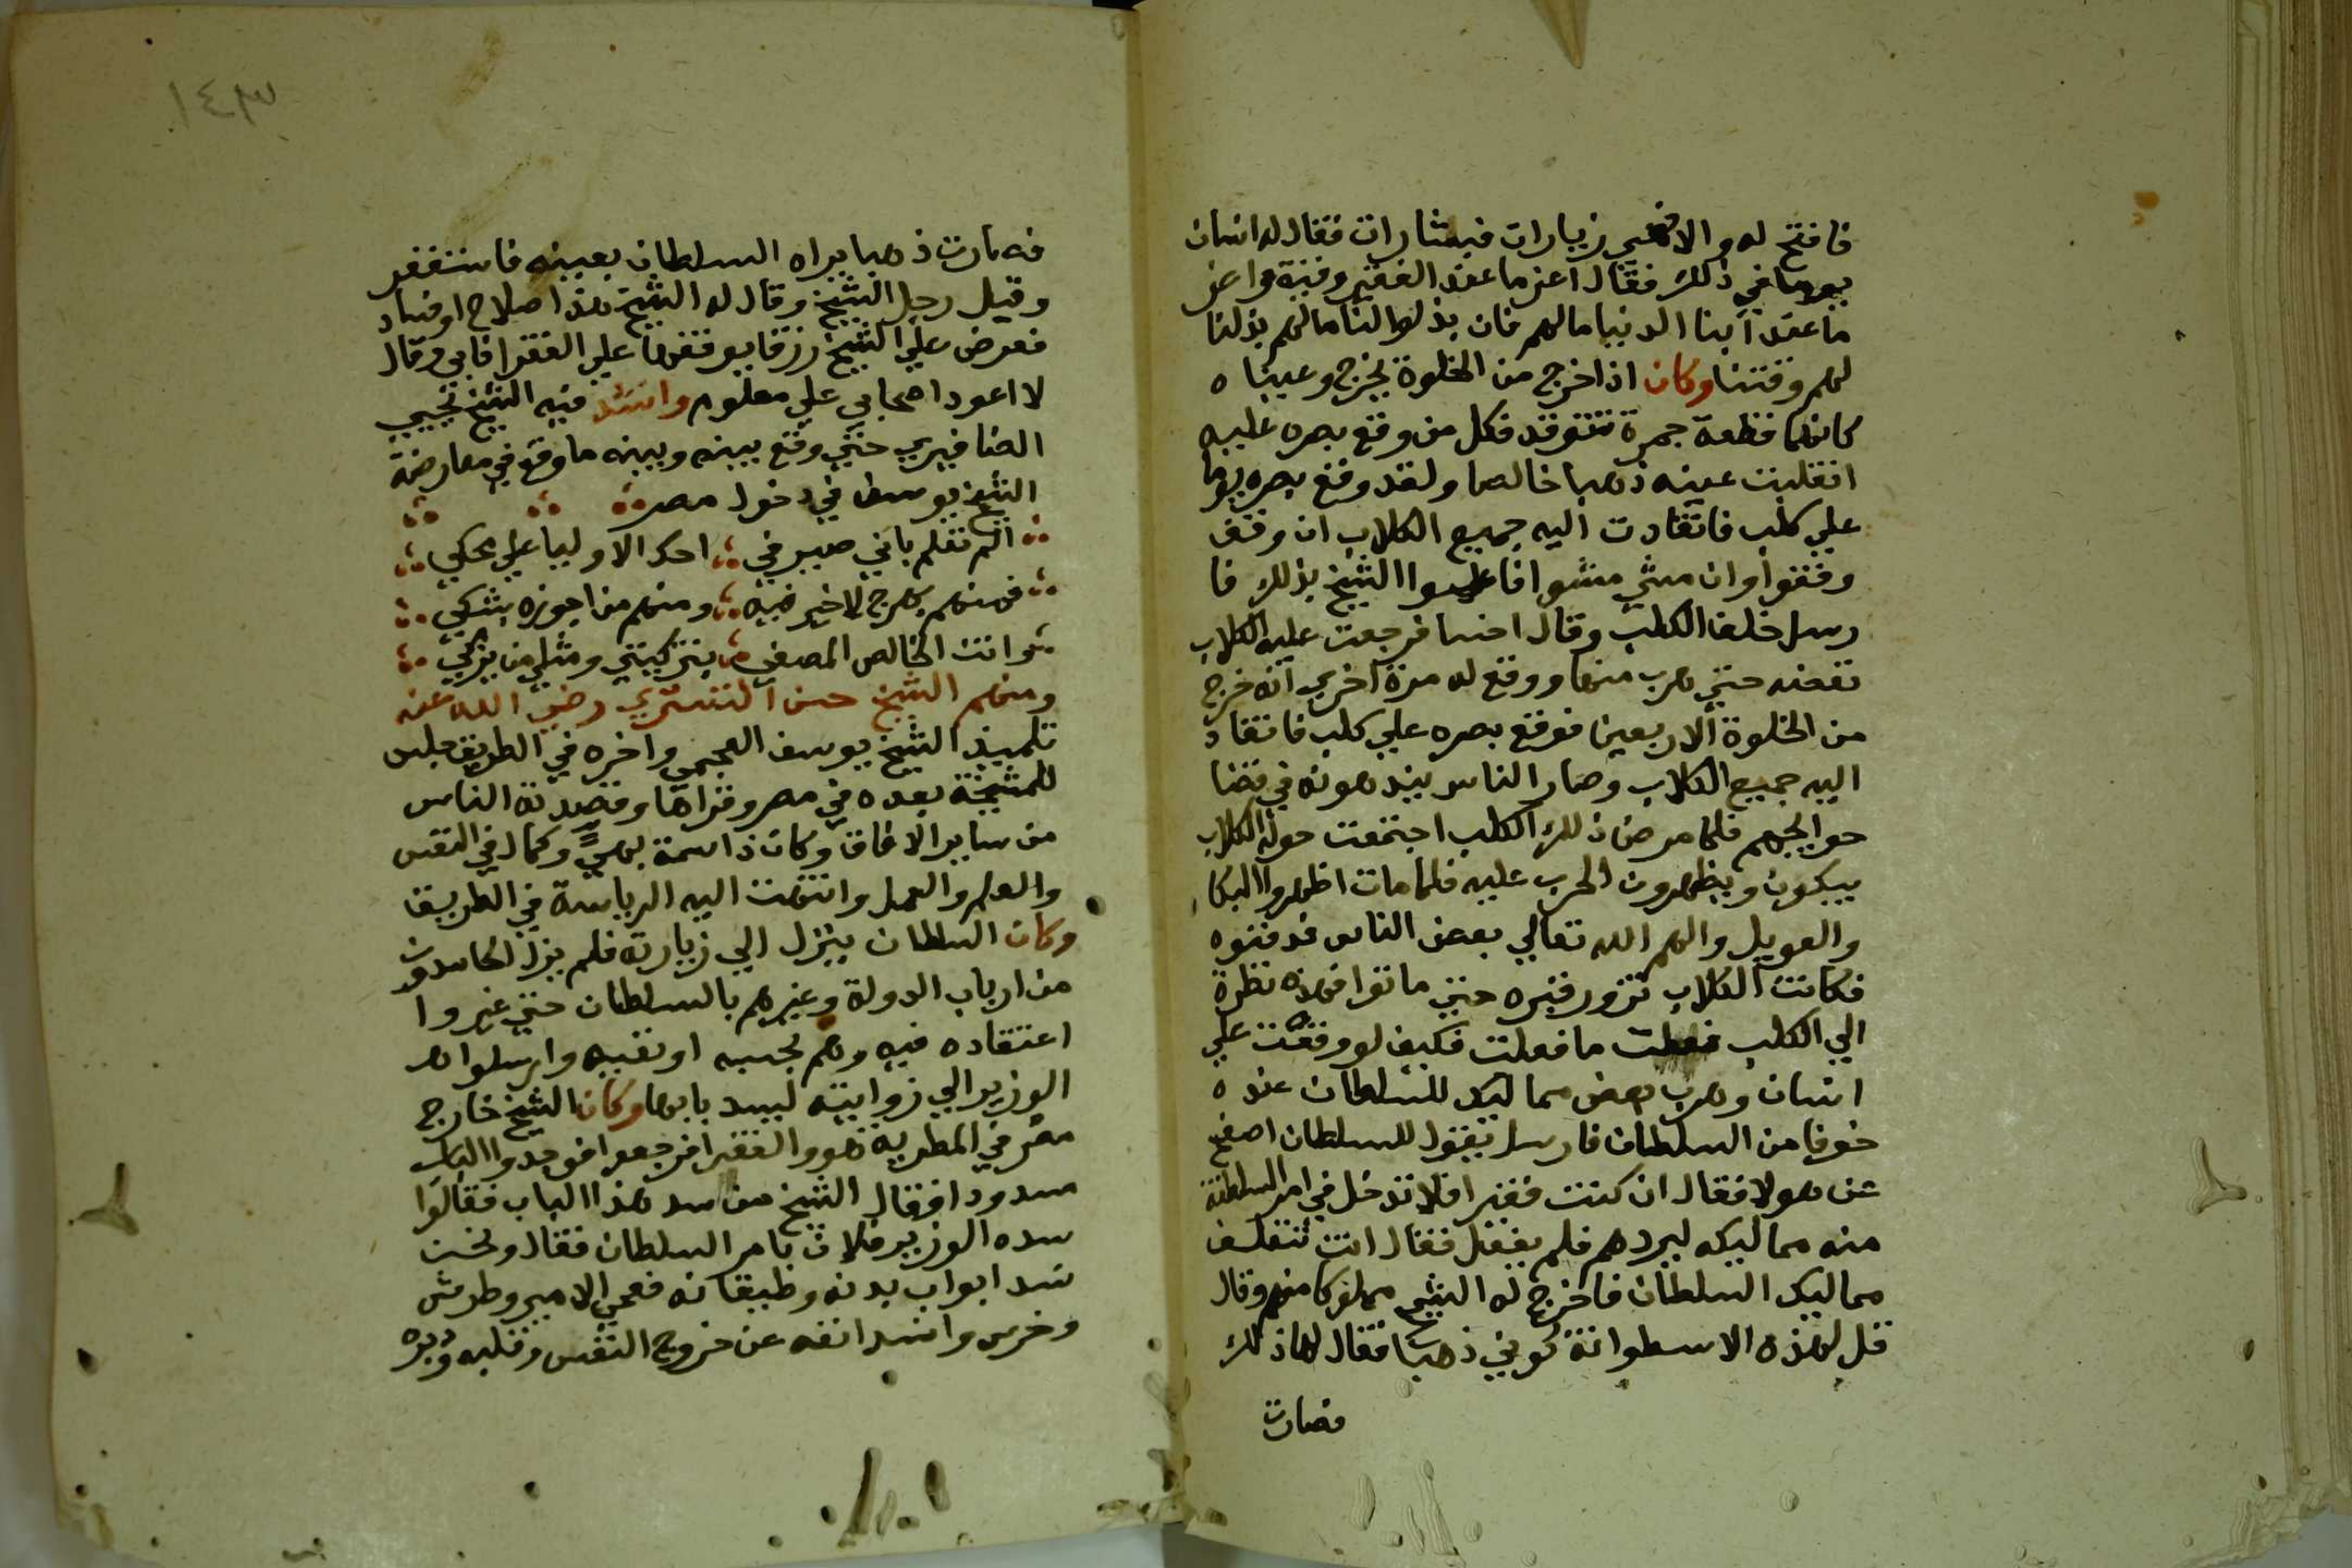 فافتح له والا فهي زيارات فيشارات فقال له انسان
يوما في ذلك فقال اعز ما عند الفقير وقته واعز
ما عند ابنا الدنيا مالهم فان بذلوا لنا مالهم بذلنا
لهم وقتنا وكان اذا خرج من الخلوة يخرج وعيناه
كانهما قطعة جمرة تتوقد فكل من وقع بصره عليه
انقلبت عينه ذهبا خالصا ولقد وقع بصره يوما
علي كلب فانقادت اليه جميع الكلاب ان وقف
وقفوا وان مشي مشوا فاعلموا الشيخ بذلك فا
رسل خلف الكلب وقال اخسا فرجعت عليه الكلاب
تعضه حتي هرب منها ووقع له مرة اخري انه خرج
من الخلوة الاربعين فوقع بصره علي كلب فانقاد
اليه جميع الكلاب وصار الناس يندهونه في قضا
حوايجهم فلما مرض ذلك الكلب اجتمعت حوله الكلاب
يبكون ويظهرون الحزن عليه فلما مات اظهروا البكا
والعويل والهم الله تعالي بعض الناس فدفنوه
فكانت الكلاب تزور قبره حتي ماتوا فهذه نظرة
الي الكلب فعلت ما فعلت فكيف لو وقعت علي
انسان وهرب بعض مماليك للسلطان عنده
خوفا من السلطان فارسل يقول للسلطان اصفح
عن هولا فقال ان كنت فقيرا فلا تدخل في امر السلطنة
منه مماليكه ليردهم فلم يفعل فقال انت تتلف
مماليك السلطان فاخرج له الشيخ مملوكا منهم وقال
قل لهذه الاسطوانة كوني ذهبا فقال لها ذلك
فصارت
١٤٣
فصارت ذهبا يراه السلطان بعينه فاستغفر
وقبل رجل الشيخ وقال له الشيخ هذا صلاح او فساد
فعرض علي الشيخ رزقا يوقفها علي الفقرا فابي وقال
لا اعود اصحابي علي معلوم وانشد فيه الشيخ يحيي
الصنافيري حتي وقع بينه وبينه ما وقع في معارضة
الشيخ يوسف في دخول مصر
الم تعلم باني صيرفي احك الاوليا علي محكي
فمنهم بهرج لا خير فيه ومنهم من اجوزه بشكي
وانت الخالص المصفي بتزكيتي ومثلي من يزكي
ومنهم الشيخ حسن التستري رضي الله عنه
تلميذ الشيخ يوسف العجمي واخوه في الطريق جلس
للمشيخة بعده في مصر وقراها وقصدته الناس
من ساير الافاق وكان ذا سمة بهي وكمال في النفس
والعلم والعمل وانتهت اليه الرياسة في الطريق
وكان السلطان ينزل الي زيارته فلم يزل الحاسدون
من ارباب الدولة وغيرهم بالسلطان حتي غيروا
اعتقاده فيه وهم بحبسه او نفيه وارسلوا له
الوزير الي زوايته ليسد بابها وكان الشيخ خارج
مصر في المطرية هو والفقرا فرجعوا فوجدوا الباب
مسدودا فقال الشيخ من سد هذا الباب فقالوا
سده الوزير فلان بامر السلطان فقال ونحن
نسد ابواب بدنه وطيقانه فعمي الامير وطرش
وخرس وانسد انفه عن خروج النفس وقلبه ودبره